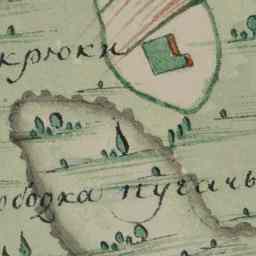 крюки
ободка пугачь